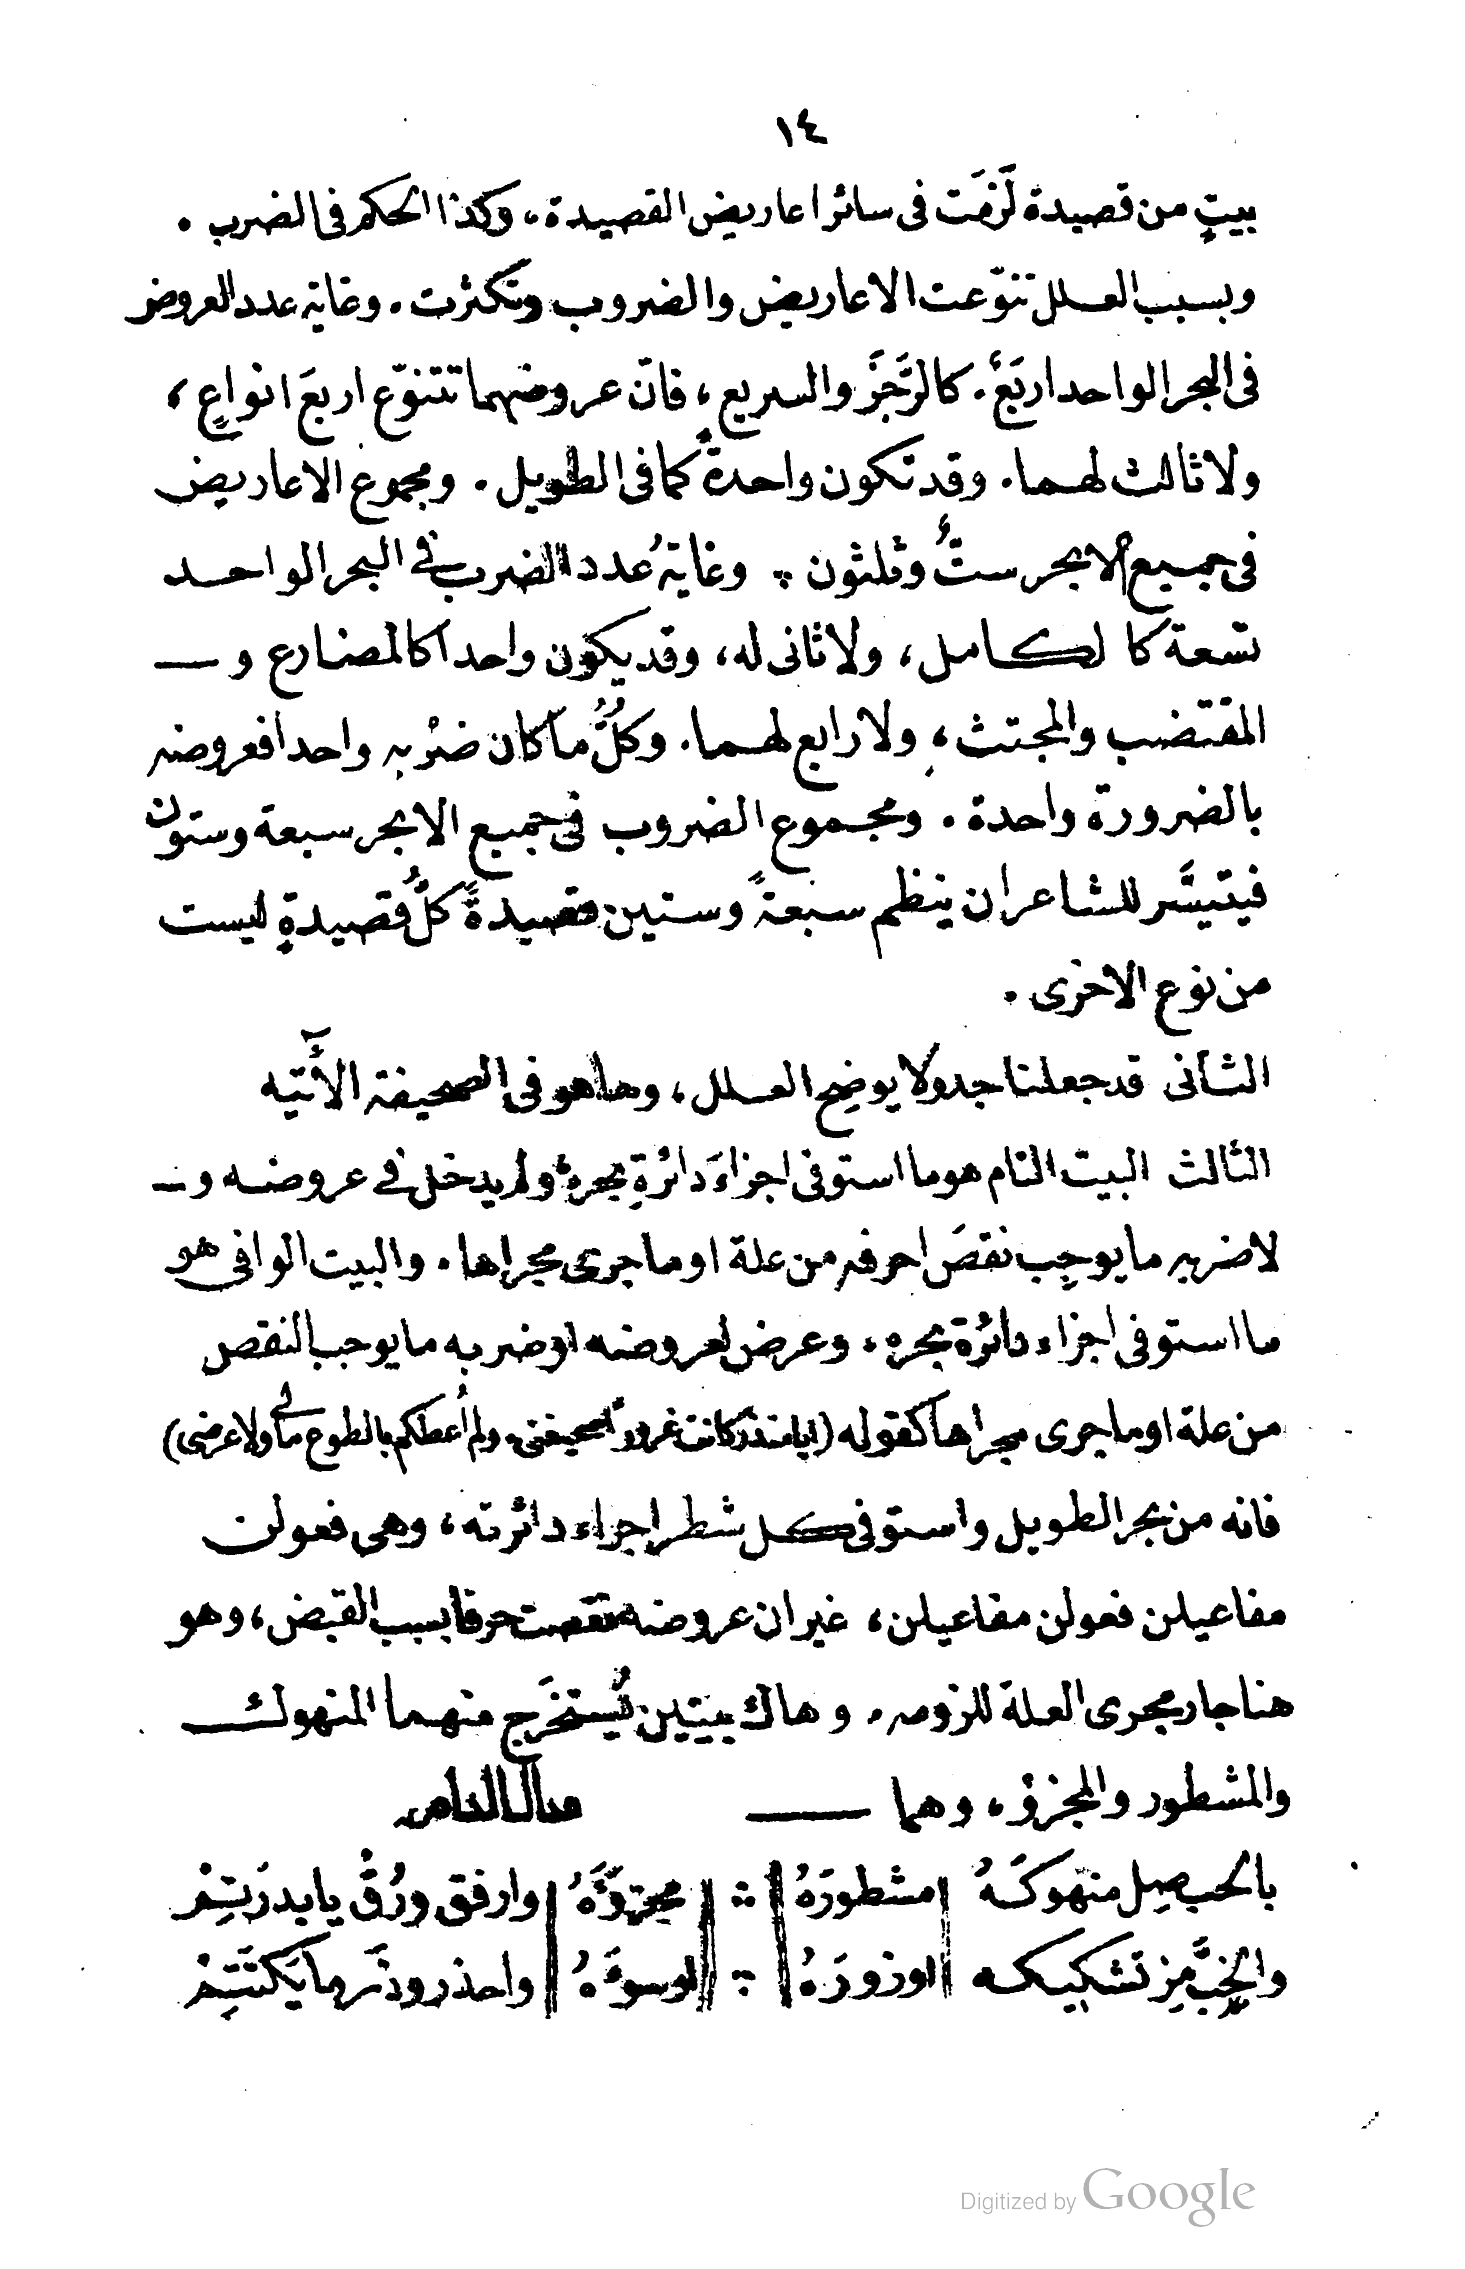 ١٤
بيتٍ من قصيدة لَزِمَت فى سائر اعاريض القصيدة، وكذا الحكم فى الضرب .
وبسبب العلل تنوّعت الاعاريض والضروب وتكثرت . وغاية عدد العروض
فى البحر الواحد اربَعٌ . كالرَّجَزِ والسريع ، فانّ عروضهما تتنوّع اربعَ انواعٍ ،
ولا ثالث لهما . وقد تكون واحدةً كما فى الطويل . ومجموع الاعاريض
فى جميع الابحر ستٌّ وثلثون . وغايةُ عدد الضرب فى البحر الواحد
تسعة كالكامل ، ولا ثانى له ، وقد يكون واحدا كالمضارع و
المقتضب والمجتث ، ولا رابع لهما . وكلُّ ما كان ضربه واحدا فعروضه
بالضرورة واحدة . ومجموع الضروب فى جميع الابحر سبعة وستون
فيتيسَّر للشاعر ان ينظم سبعةً وستين قصيدةً كلُّ قصيدةٍ ليست
من نوع الاخرى .
الثانى قد جعلنا جدولا يوضح العلل ، وها هو فى الصحيفة الآتيه
الثالث البيت التام هو ما استوفى اجزاءَ دائرةِ بحرهِ ولم يدخل فى عروضه و
لا ضربه ما يوجب نقصَ احرفه من علة او ما جرى مجراها . والبيت الوافى هو
ما استوفى اجزاء دائرة بحره . وعرض لعروضه او ضربه ما يوجب النقص
من علة او ما جرى مجراها كقوله (ابا منذر كانت غرورًا صحيفتى . ولم أُعطكم بالطوع مالى ولا عرضى)
فانه من بحر الطويل واستوفى كل شطر اجزاء دائرته ، وهى فعولن
مفاعيلن فعولن مفاعيلن ، غير ان عروضه نقصت حرفا بسبب القبض ، وهو
هنا جار مجرى العلة للزومه . وهاك بيتين يُستخرَج منهما المنهوك
والمشطور والمجزؤ ، وهما مثال التام
بالحب صِل منهوكَهُ مشطورَهُ مجزوَّهُ وارفق ورُقْ يا بدرَ تِمْ
والخِبَّ مِز تشكيكه او زورَهُ او سوءَهُ واحذر وذَر ما يَكتَتِمْ
Digitized by Google